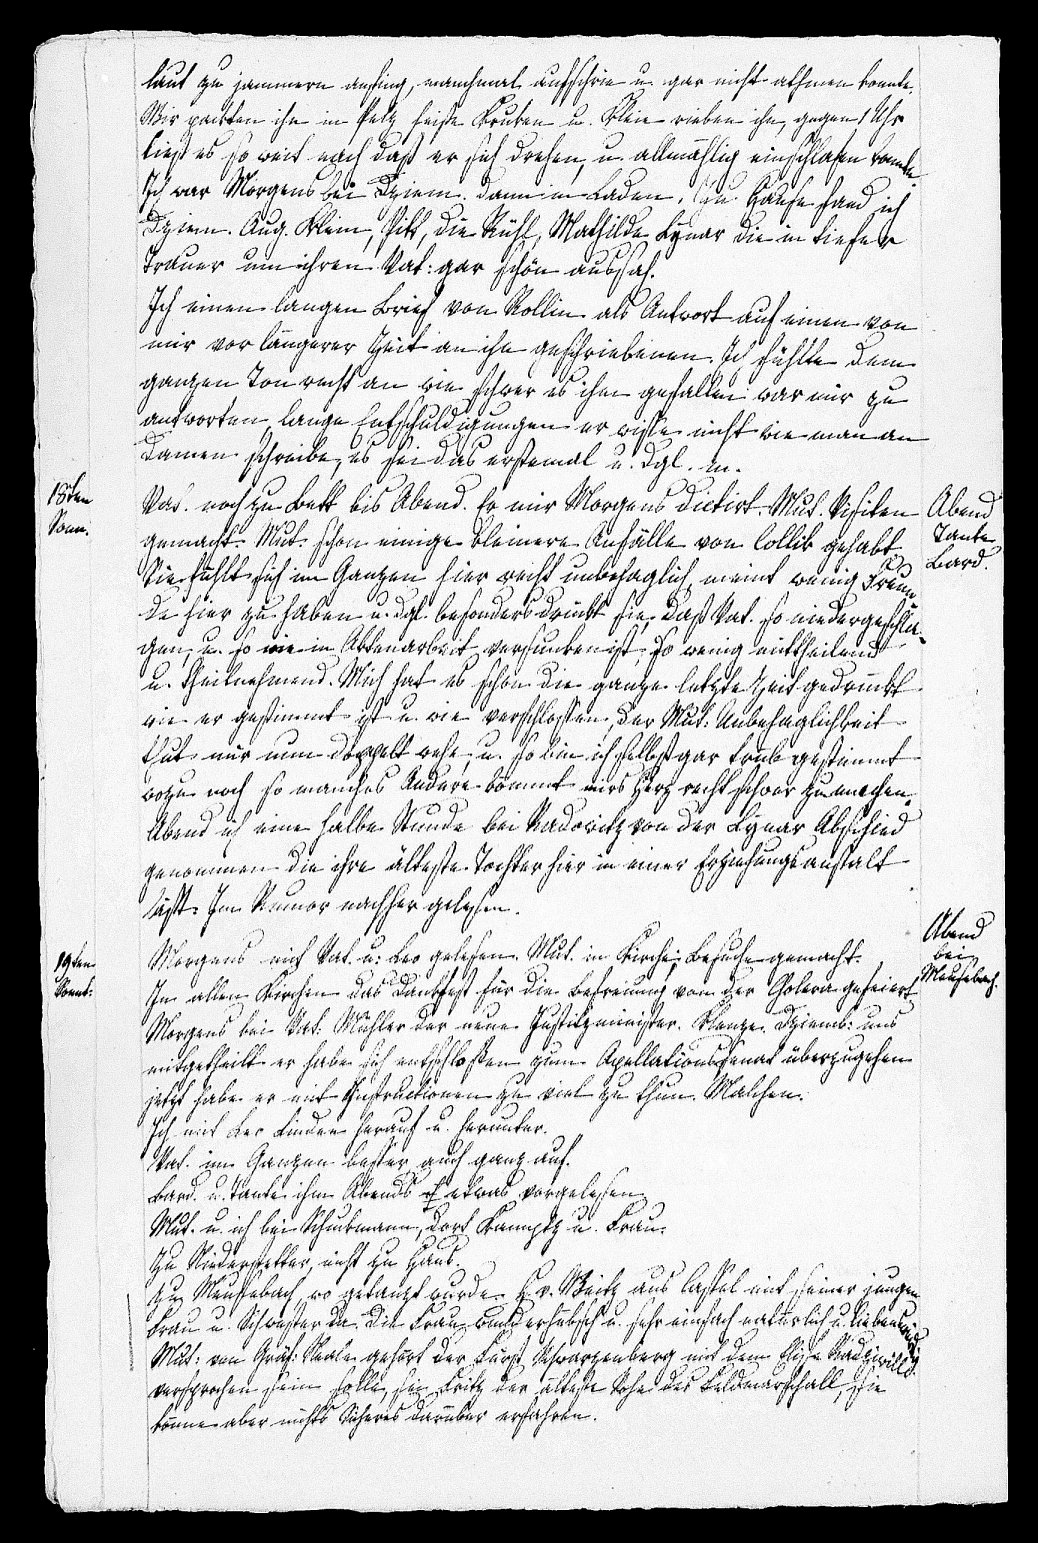 laut zu jammern anfing, manchmal aufschrie u. gar nicht athmen konnte.
Wir packten ihn in Pelz heiße Kruken u. Kleie rieben ihn, gegen 1 Uhr
ließ es so weit nach daß er sich drehen, u. allmählig einschlafen konnte.
Ich war Morgens bei Dziem. dann in Laden. Zu Hause fand ich
Dziem. Aug. Klein, Pitt, die Rühl, Mathilde Lynar die in tiefer
Trauer um ihren Vat: gar schön aussah.
Ich einen langen Brief von Rollin als Antwort auf einen von
mir vor längerer Zeit an ihn geschriebenen. Ich fühlte dem
ganzen Ton recht an wie schwer es ihm gefallen war mir zu
antworten, lange Entschuldigungen er wisse nicht wie man an
Damen schreibe, es sei das erstemal u. dgl. m.
18ten
Sonn.
Vat. noch zu Bett bis Abend. Er mir Morgens dictirt. Mut. Visiten
gemacht. Mut. schon einige kleinere Anfälle von Collik gehabt
Sie fühlt sich im Ganzen hier recht unbehaglich, meint wenig Freun
de hier zu haben u. dgl. besonders drückt sie daß Vat. so niedergeschla-
gen, u. so wie in Aktenarbeit versunken ist, so wenig mittheilend
u. theilnehmend. Mich hat es schon die ganze letzte Zeit gedrückt
wie er gestimmt ist u. wie verschlossen, der Mut: Unbehaglichkeit
thut mir nun doppelt wehe, u. so bin ich selbst gar trüb gestimmt
wozu noch so manches Andere kommt mirs Herz recht schwer zu machen.
Abend ich eine halbe Stunde bei Radowitz von der Lynar Abschied
genommen die ihre älteste Tochter hier in einer Erziehungsanstalt
läßt. Im Rumor nachher gelesen.
Abend
Tante
Bard.
19ten
Sonnt:
Morgens mit Vat. u: Leo gelesen. Mut. in Kirche, Besuche gemacht.
In allen Kirchen das Dankfest für die Befreiung von der Colera gefeiert
Morgens bei Vat. Mühler der neue Justitzminister. Klenze. Dziemb: uns
mitgetheilt er habe sich entschlossen zum Apellationssenat überzugehen
jetzt habe er mit Instructionen zu viel zu thun. Malchen.
Ich mit Leo Linden herauf u. herunter.
Vat. im Ganzen besser auch ganz auf.
Bard. u. Tante ihm Abends etwas vorgelesen
Mut. u. ich bei Schuckmann, dort Kamptz u. Frau.
Zu Niederstetter, nicht zu Haus.
Zu Meusebach, wo getanzt wurde. H. v. Weitz aus Cassel mit seiner jungen
Frau u. Schwester da. Die Frau wunderhübsch u. sehr einfach natürlich u. liebenswürdig
Mut: von Gräf: Neale gehört der Fürst Schwarzenberg mit dem Elise Radziwill
versprochen sein solle, sei Fritz der älteste Sohn des Feldmarschall, sie
könne aber nichts Näheres darüber erfahren.
Abend
bei
Meusebach.